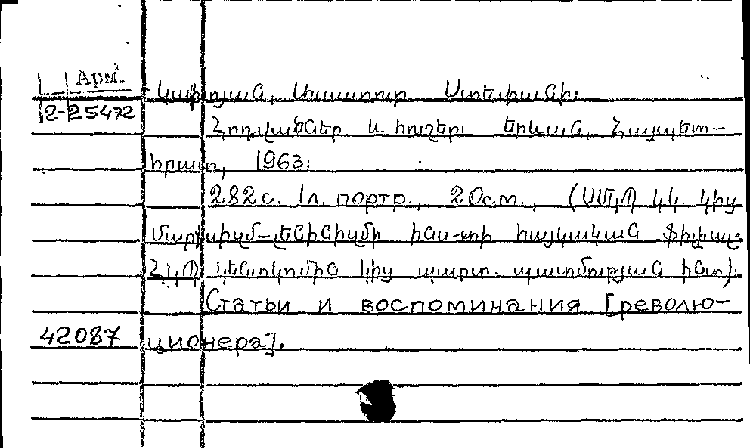 Арм.
2-25472
Ասատուր Ստեփանի
Հոդվածներ և հուշեր. Երևան, Հայպետ-
հրատ, 1963.
282с. 1л. портр., 20см., (ՍՄԿՊ ԿԿ կից
մարքսիզմ-լենինիզմի ինս-տի հայկական ֆիլիալ.
ՀԿՊ կենտկոմին կից պարտ. պատմության ինստ).
Статьи и воспоминания [револю-
42087 ционера].